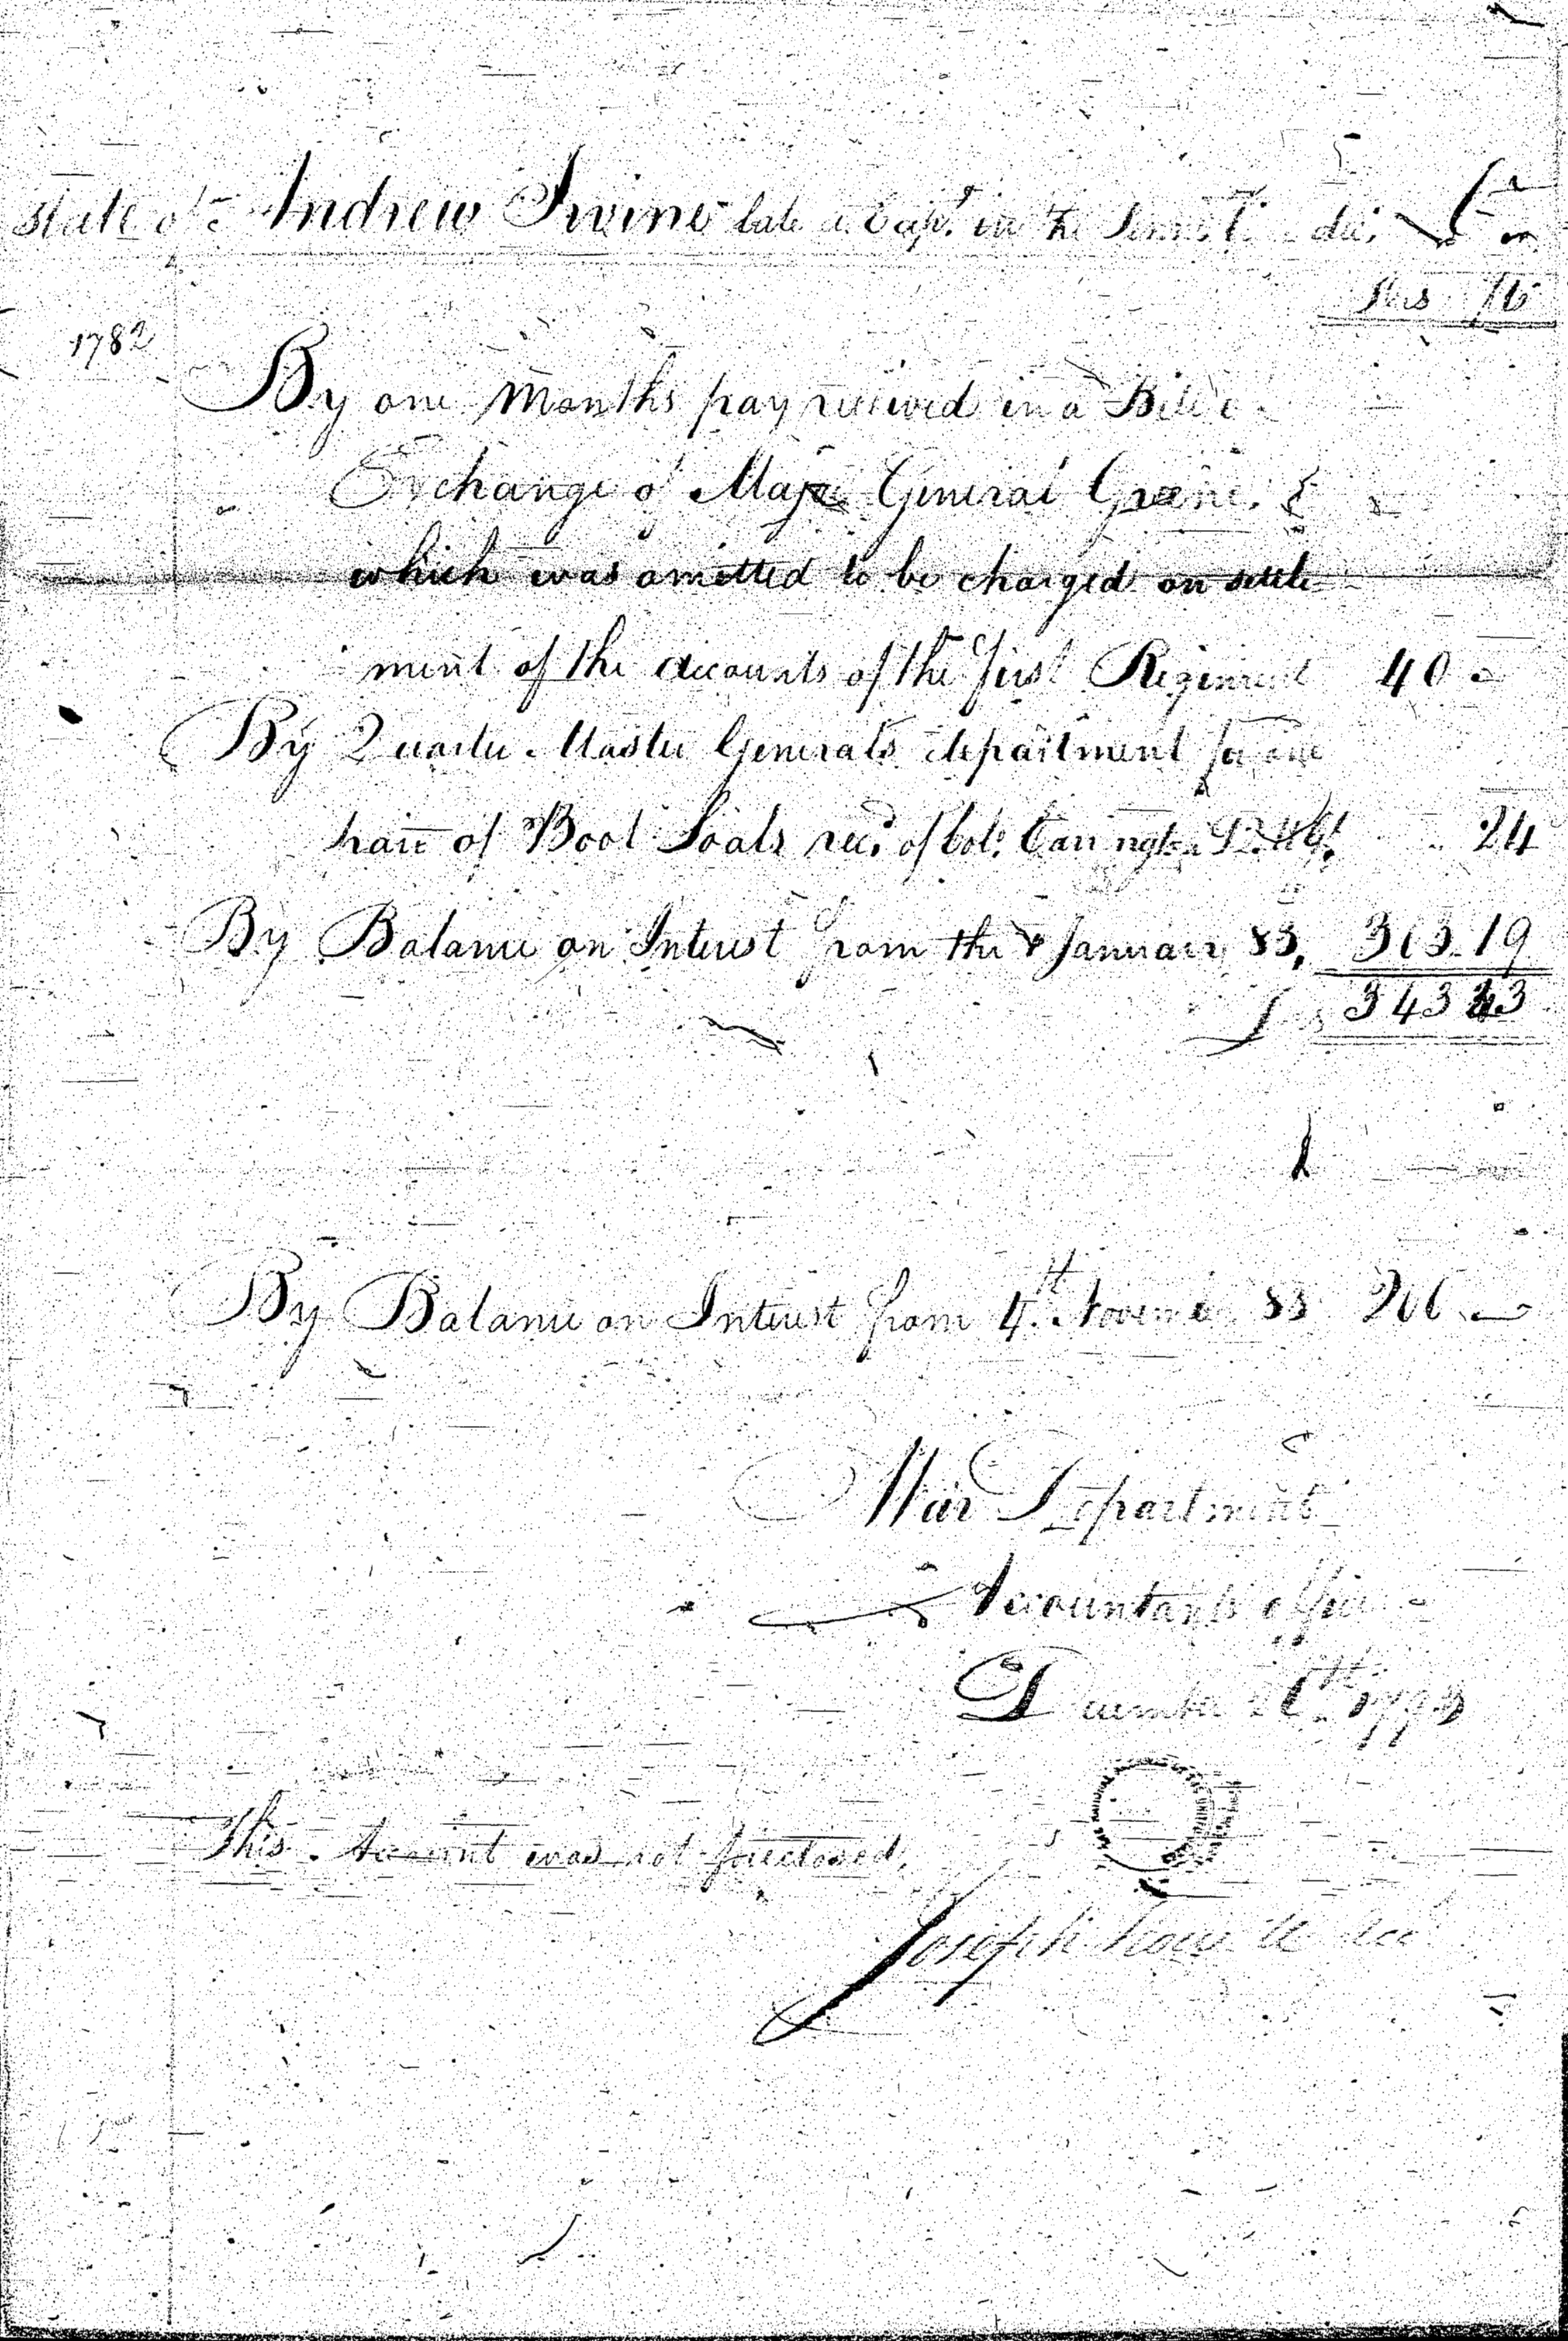 State of Andrew Irvine late a Capt. in the
1782
By one Months pay received in a Bill
Exchange of Major General Greene
which was omitted to be charged on settle
ment of the accounts of the first Regiment 40
By Quarter Master Generals department for one
pair of Boot Soals recd. of Col: Carrington 24
By Balance on Interest from the January 83, 303.19
343 43
By Balance on Interest from 4th. Novem 83
War Department
Accountants office
December
This Account was not
Joseph Howell